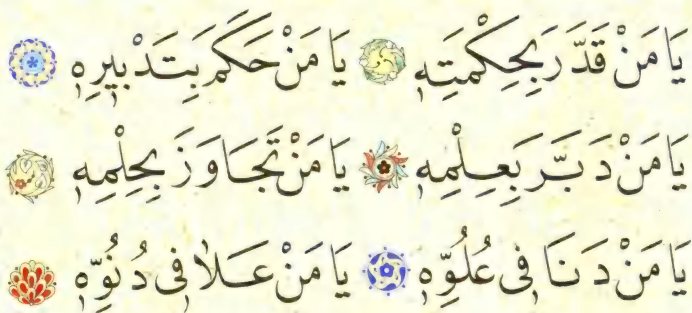 يَا مَنْ قَدَّرَ بِحِكْمَتِهٖ يَا مَنْ حَكَمَ بِتَدْبِيرِهٖ
يَا مَنْ دَبَّرَ بِعِلْمِهٖ يَا مَنْ تَجَاوَزَ بِحِلْمِهٖ
يَا مَنْ دَنَا فٖى عُلُوِّهٖ يَا مَنْ عَلَا فٖى دُنُوِّهٖ